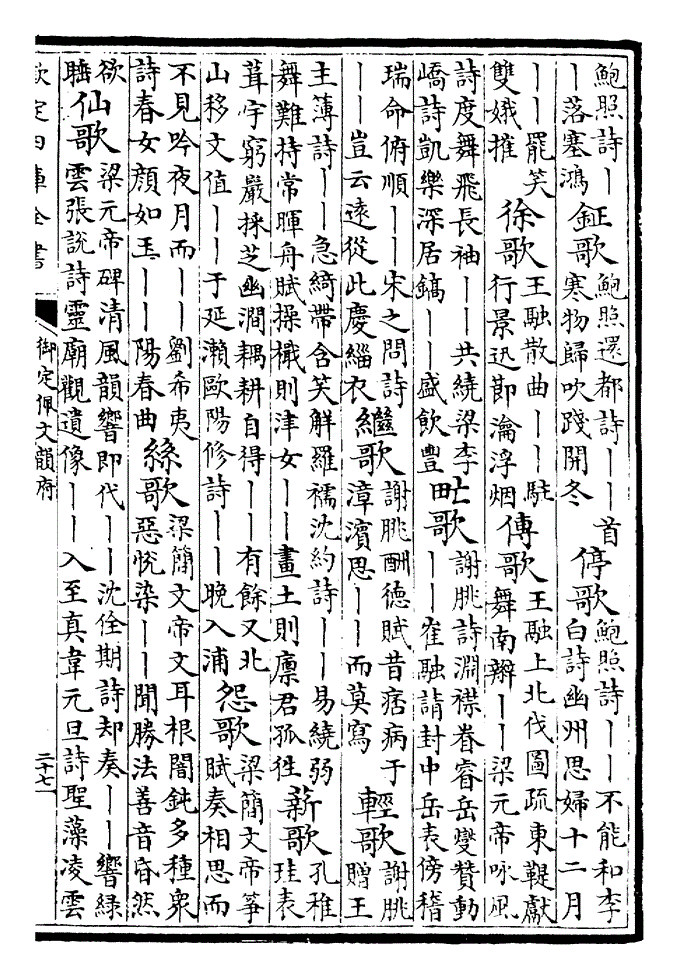 鮑照詩丨
丨落塞鴻
鉦歌
鮑照還都詩丨丨首
寒物歸吹踐開冬
停歌
鮑照詩丨丨不能和李
白詩幽州思婦十二月
丨丨罷笑
雙娥摧
徐歌
王融散曲丨丨駐
行景迅節瀹浮烟
傳歌
王融上北伐圖疏東鞮獻
舞南辮丨丨梁元帝咏風
詩度舞飛長袖丨丨共繞梁李
嶠詩凱樂深居鎬丨丨盛飲豐
甿歌
謝朓詩淵襟眷睿岳變贊動
丨丨崔融請封中岳表傍稽
瑞命俯順丨丨宋之問詩
丨丨豈云遠從此慶緇衣
繼歌
謝朓酬德賦昔痁病于
漳濱思丨丨而莫寫
輕歌
謝朓
贈王
主薄詩丨丨急綺帶含笑解羅襦沈約詩丨丨易繞弱
舞難持常暉舟賦操檝則津女丨丨畫土則廩君孤徃
薪歌
孔稚
珪表
葺宇窮巖採芝幽澗耦耕自得丨丨有餘又北
山移文值丨丨于延瀨歐陽修詩丨丨晚入浦
怨歌
梁簡文帝箏
賦奏相思而
不見吟夜月而丨丨劉希夷
詩春女顏如玉丨丨陽春曲
絲歌
梁簡文帝文耳根闇鈍多種衆
惡恱染丨丨聞勝法善音昏然
欲
睡
仙歌
梁元帝碑清風韻響即代丨丨沈佺期詩却奏丨丨響綠
雲張說詩靈廟觀遺像丨丨入至真韋元旦詩聖藻凌雲
欽定四庫全書
御定佩文韻府
二十七